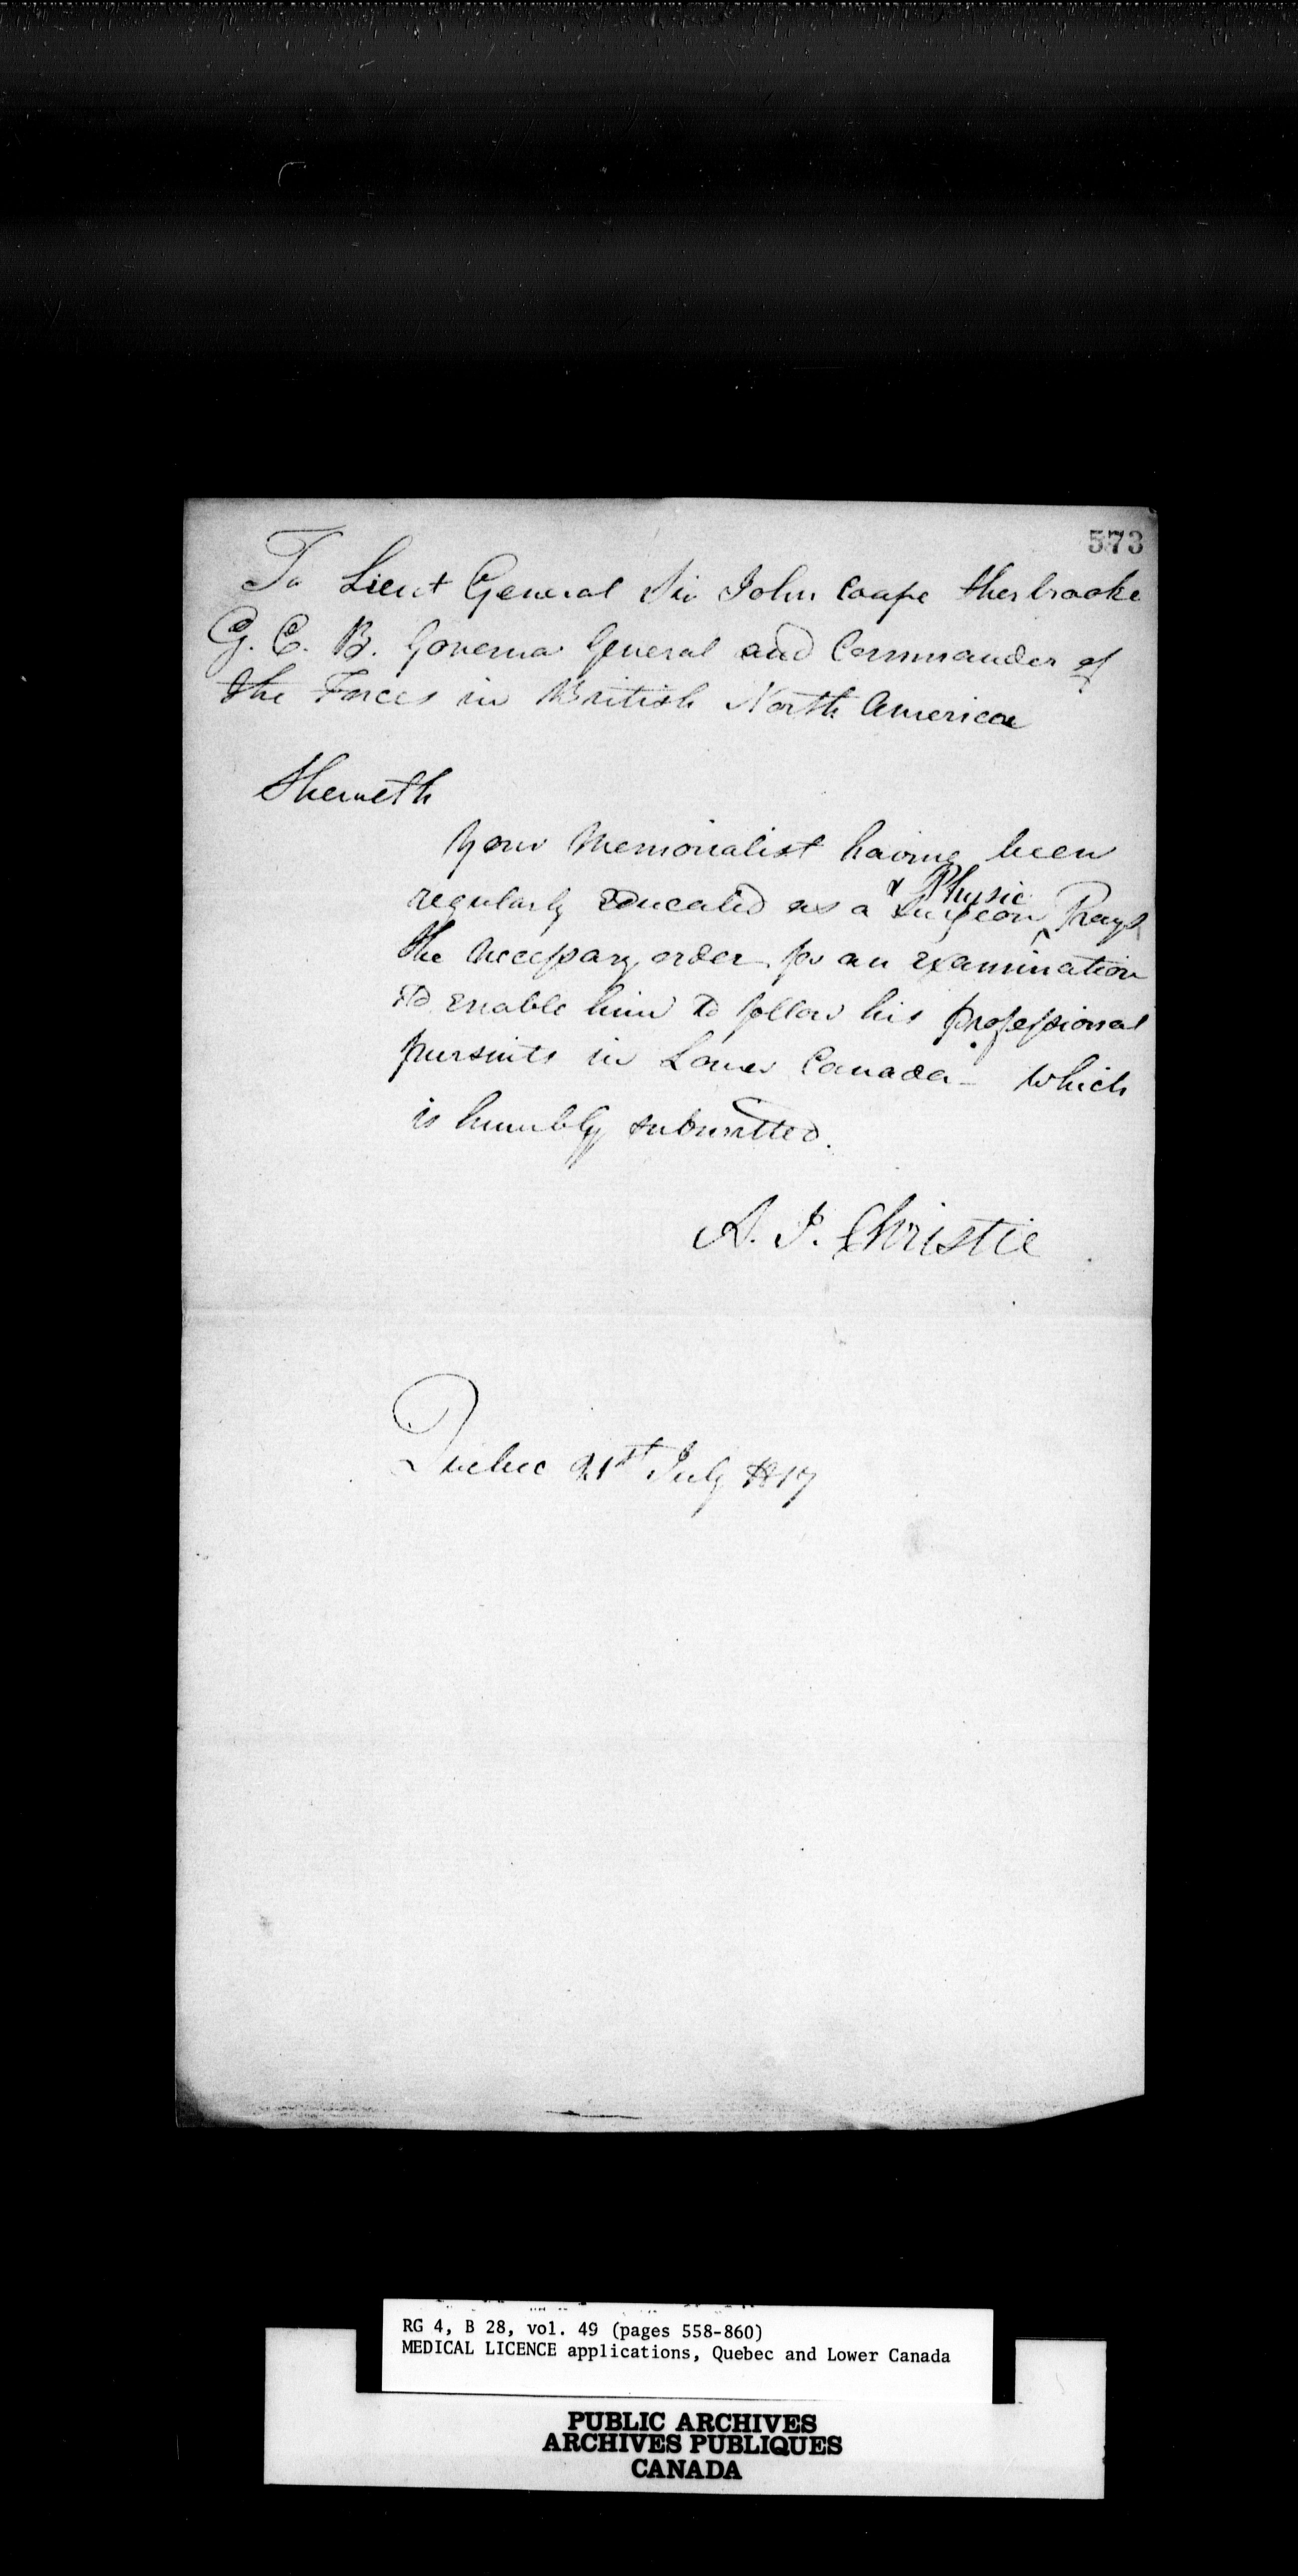 573
To Lieut General Sir John Coape Sherbrooke
G. C. B. Governor General and Commander of
the Forces in British North America
Sheweth
Your Memorialist having been
& Physic
regularly Educated as a Surgeon ‸ Prays
the Necessary order for an examination
to enable him to follow his professional
pursuits in Lower Canada – Which
is humbly submitted.
A. J. Christie
Quebec 21st July 1817
RG 4, B 28, vol. 49 (pages 558-860)
MEDICAL LICENCE applications, Quebec and Lower Canada
PUBLIC ARCHIVES
ARCHIVES PUBLIQUES
CANADA